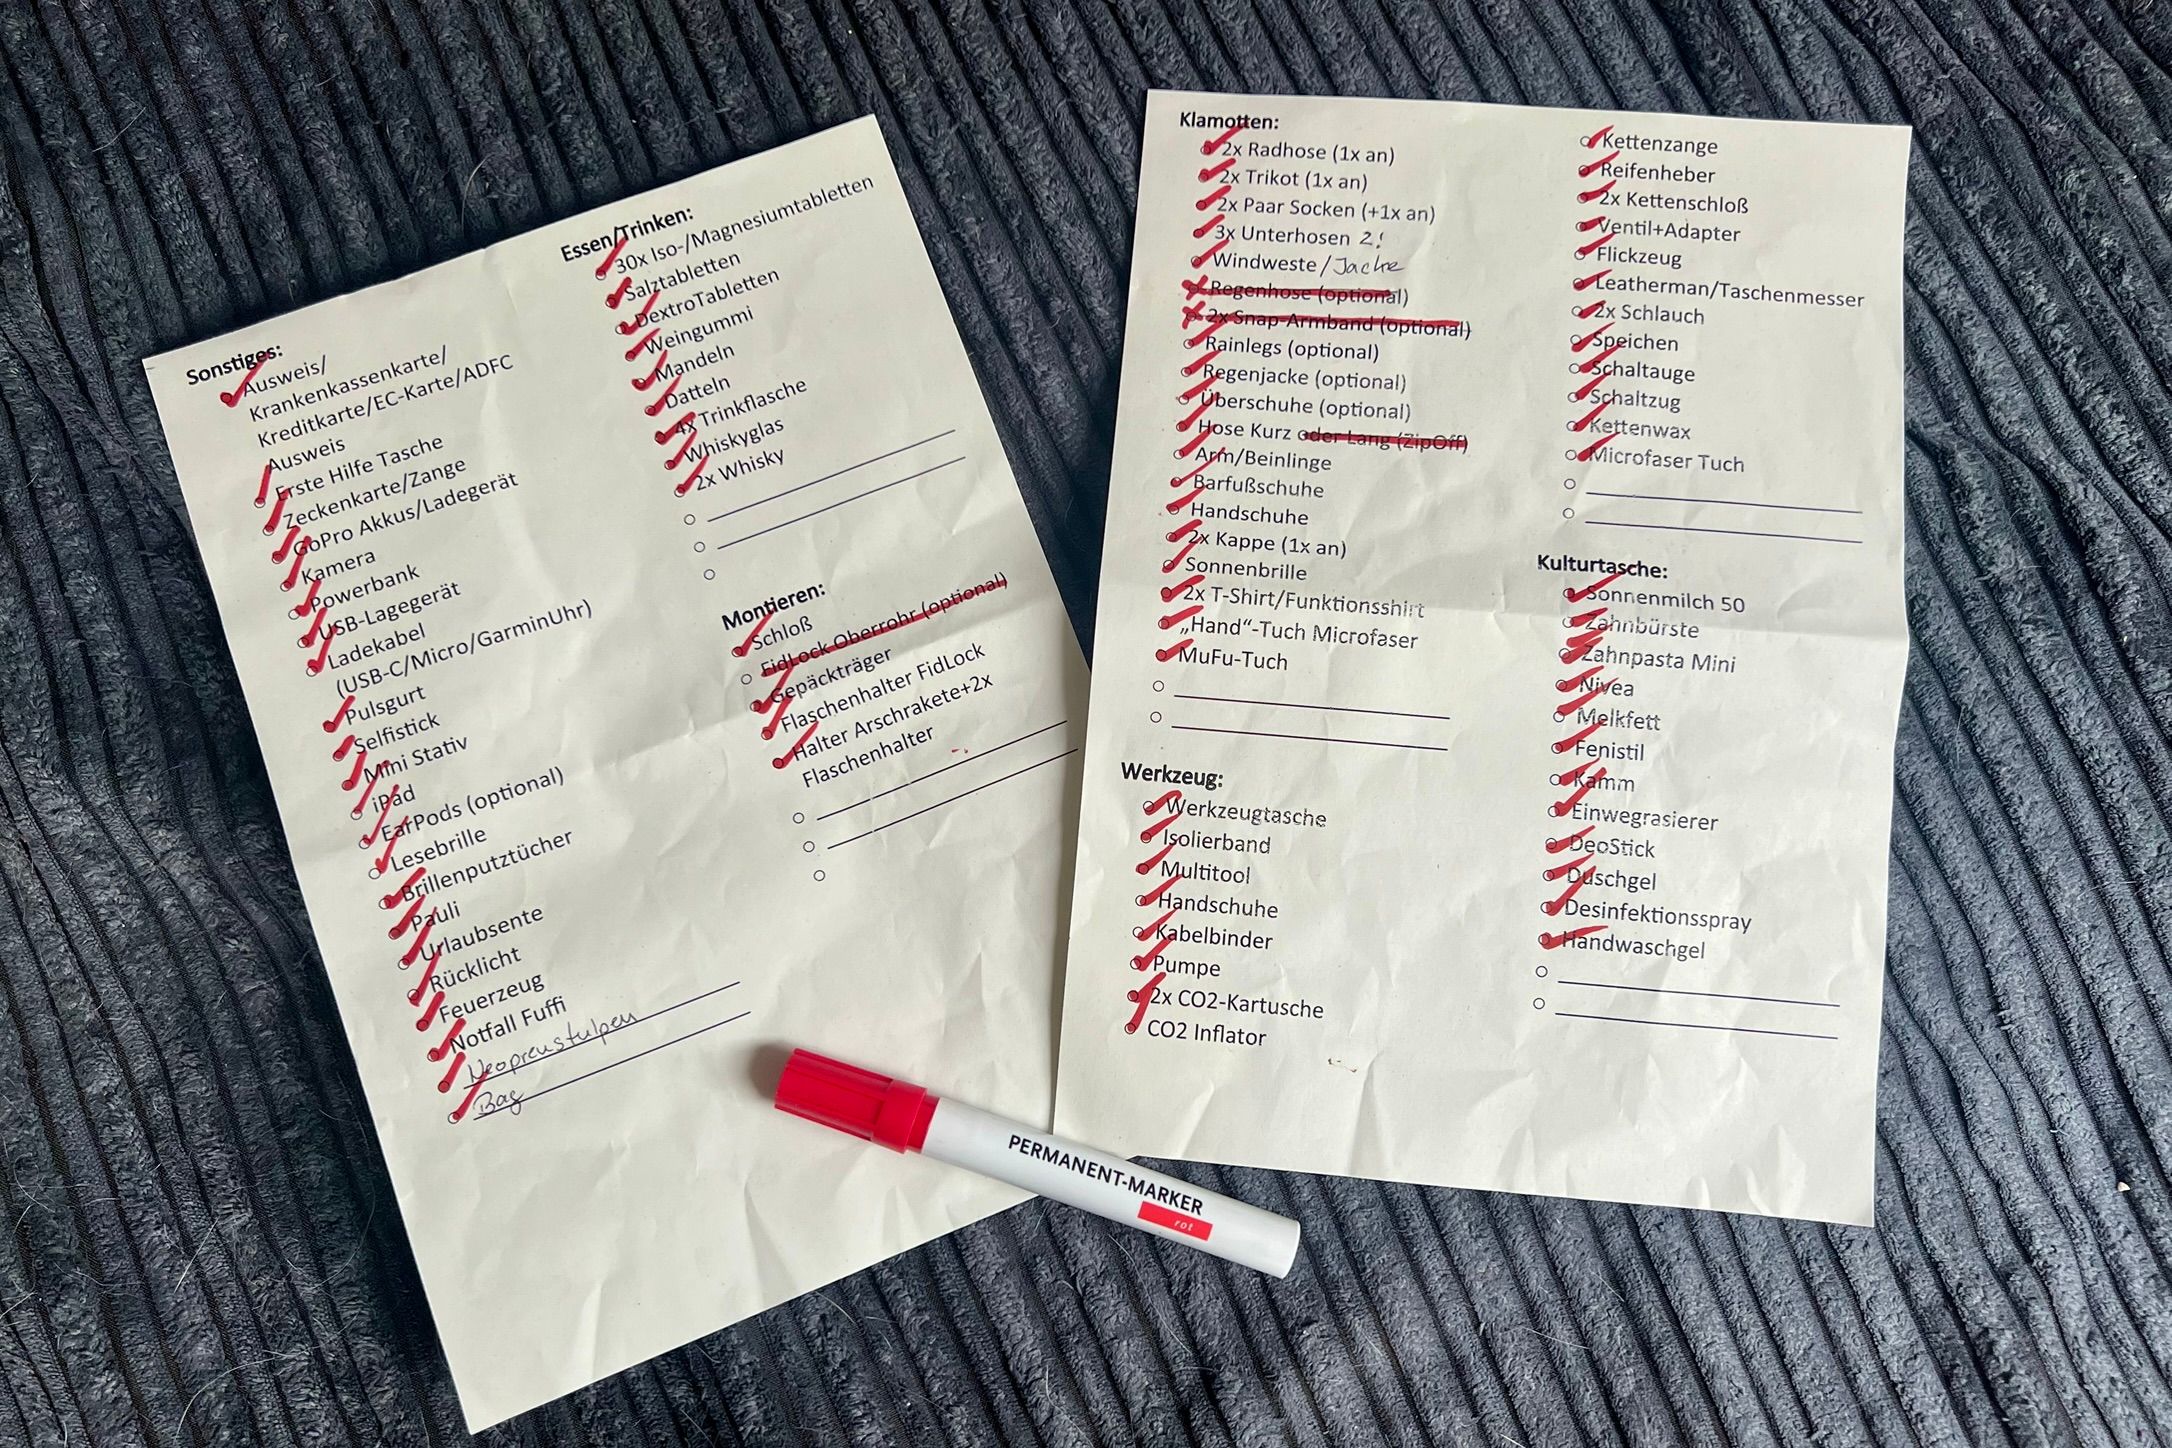 Sonstiges:
Ausweis/
Krankenkassenkarte/
Kreditkarte/EC-Karte/ADFC
Ausweis
Erste Hilfe Tasche
Zeckenkarte/Zange
GoPro Akkus/Ladegerät
Kamera
Powerbank
USB-Lagegerät
Ladekabel
(USB-C/Micro/GarminUhr)
Pulsgurt
Selfistick
Mini Stativ
iPad
EarPods (optional)
Lesebrille
Brillenputztücher
Pauli
Urlaubsente
Rücklicht
Feuerzeug
Notfall Fuffi
Neoprenstulpen
Bag
Essen/Trinken:
30x Iso-/Magnesiumtabletten
Salztabletten
DextroTabletten
Weingummi
Mandeln
Datteln
4x Trinkflasche
Whiskyglas
2x Whisky
Montieren:
Schloß
FidLock Oberrohr (optional)
Gepäckträger
Flaschenhalter FidLock
Halter Arschrakete+2x
Flaschenhalter
Klamotten:
2x Radhose (1x an)
2x Trikot (1x an)
2x Paar Socken (+1x an)
3x Unterhosen 2!
Windweste/Jacke
Regenhose (optional)
2x Snap-Armband (optional)
Rainlegs (optional)
Regenjacke (optional)
Überschuhe (optional)
Hose Kurz oder Lang (ZipOff)
Arm/Beinlinge
Barfußschuhe
Handschuhe
2x Kappe (1x an)
Sonnenbrille
2x T-Shirt/Funktionsshirt
„Hand“-Tuch Microfaser
MuFu-Tuch
Werkzeug:
Werkzeugtasche
Isolierband
Multitool
Handschuhe
Kabelbinder
Pumpe
2x CO2-Kartusche
CO2 Inflator
Kettenzange
Reifenheber
2x Kettenschloß
Ventil+Adapter
Flickzeug
Leatherman/Taschenmesser
2x Schlauch
Speichen
Schaltauge
Schaltzug
Kettenwax
Microfaser Tuch
Kulturtasche:
Sonnenmilch 50
Zahnbürste
Zahnpasta Mini
Nivea
Melkfett
Fenistil
Kamm
Einwegrasierer
DeoStick
Duschgel
Desinfektionsspray
Handwaschgel
PERMANENT-MARKER
rot